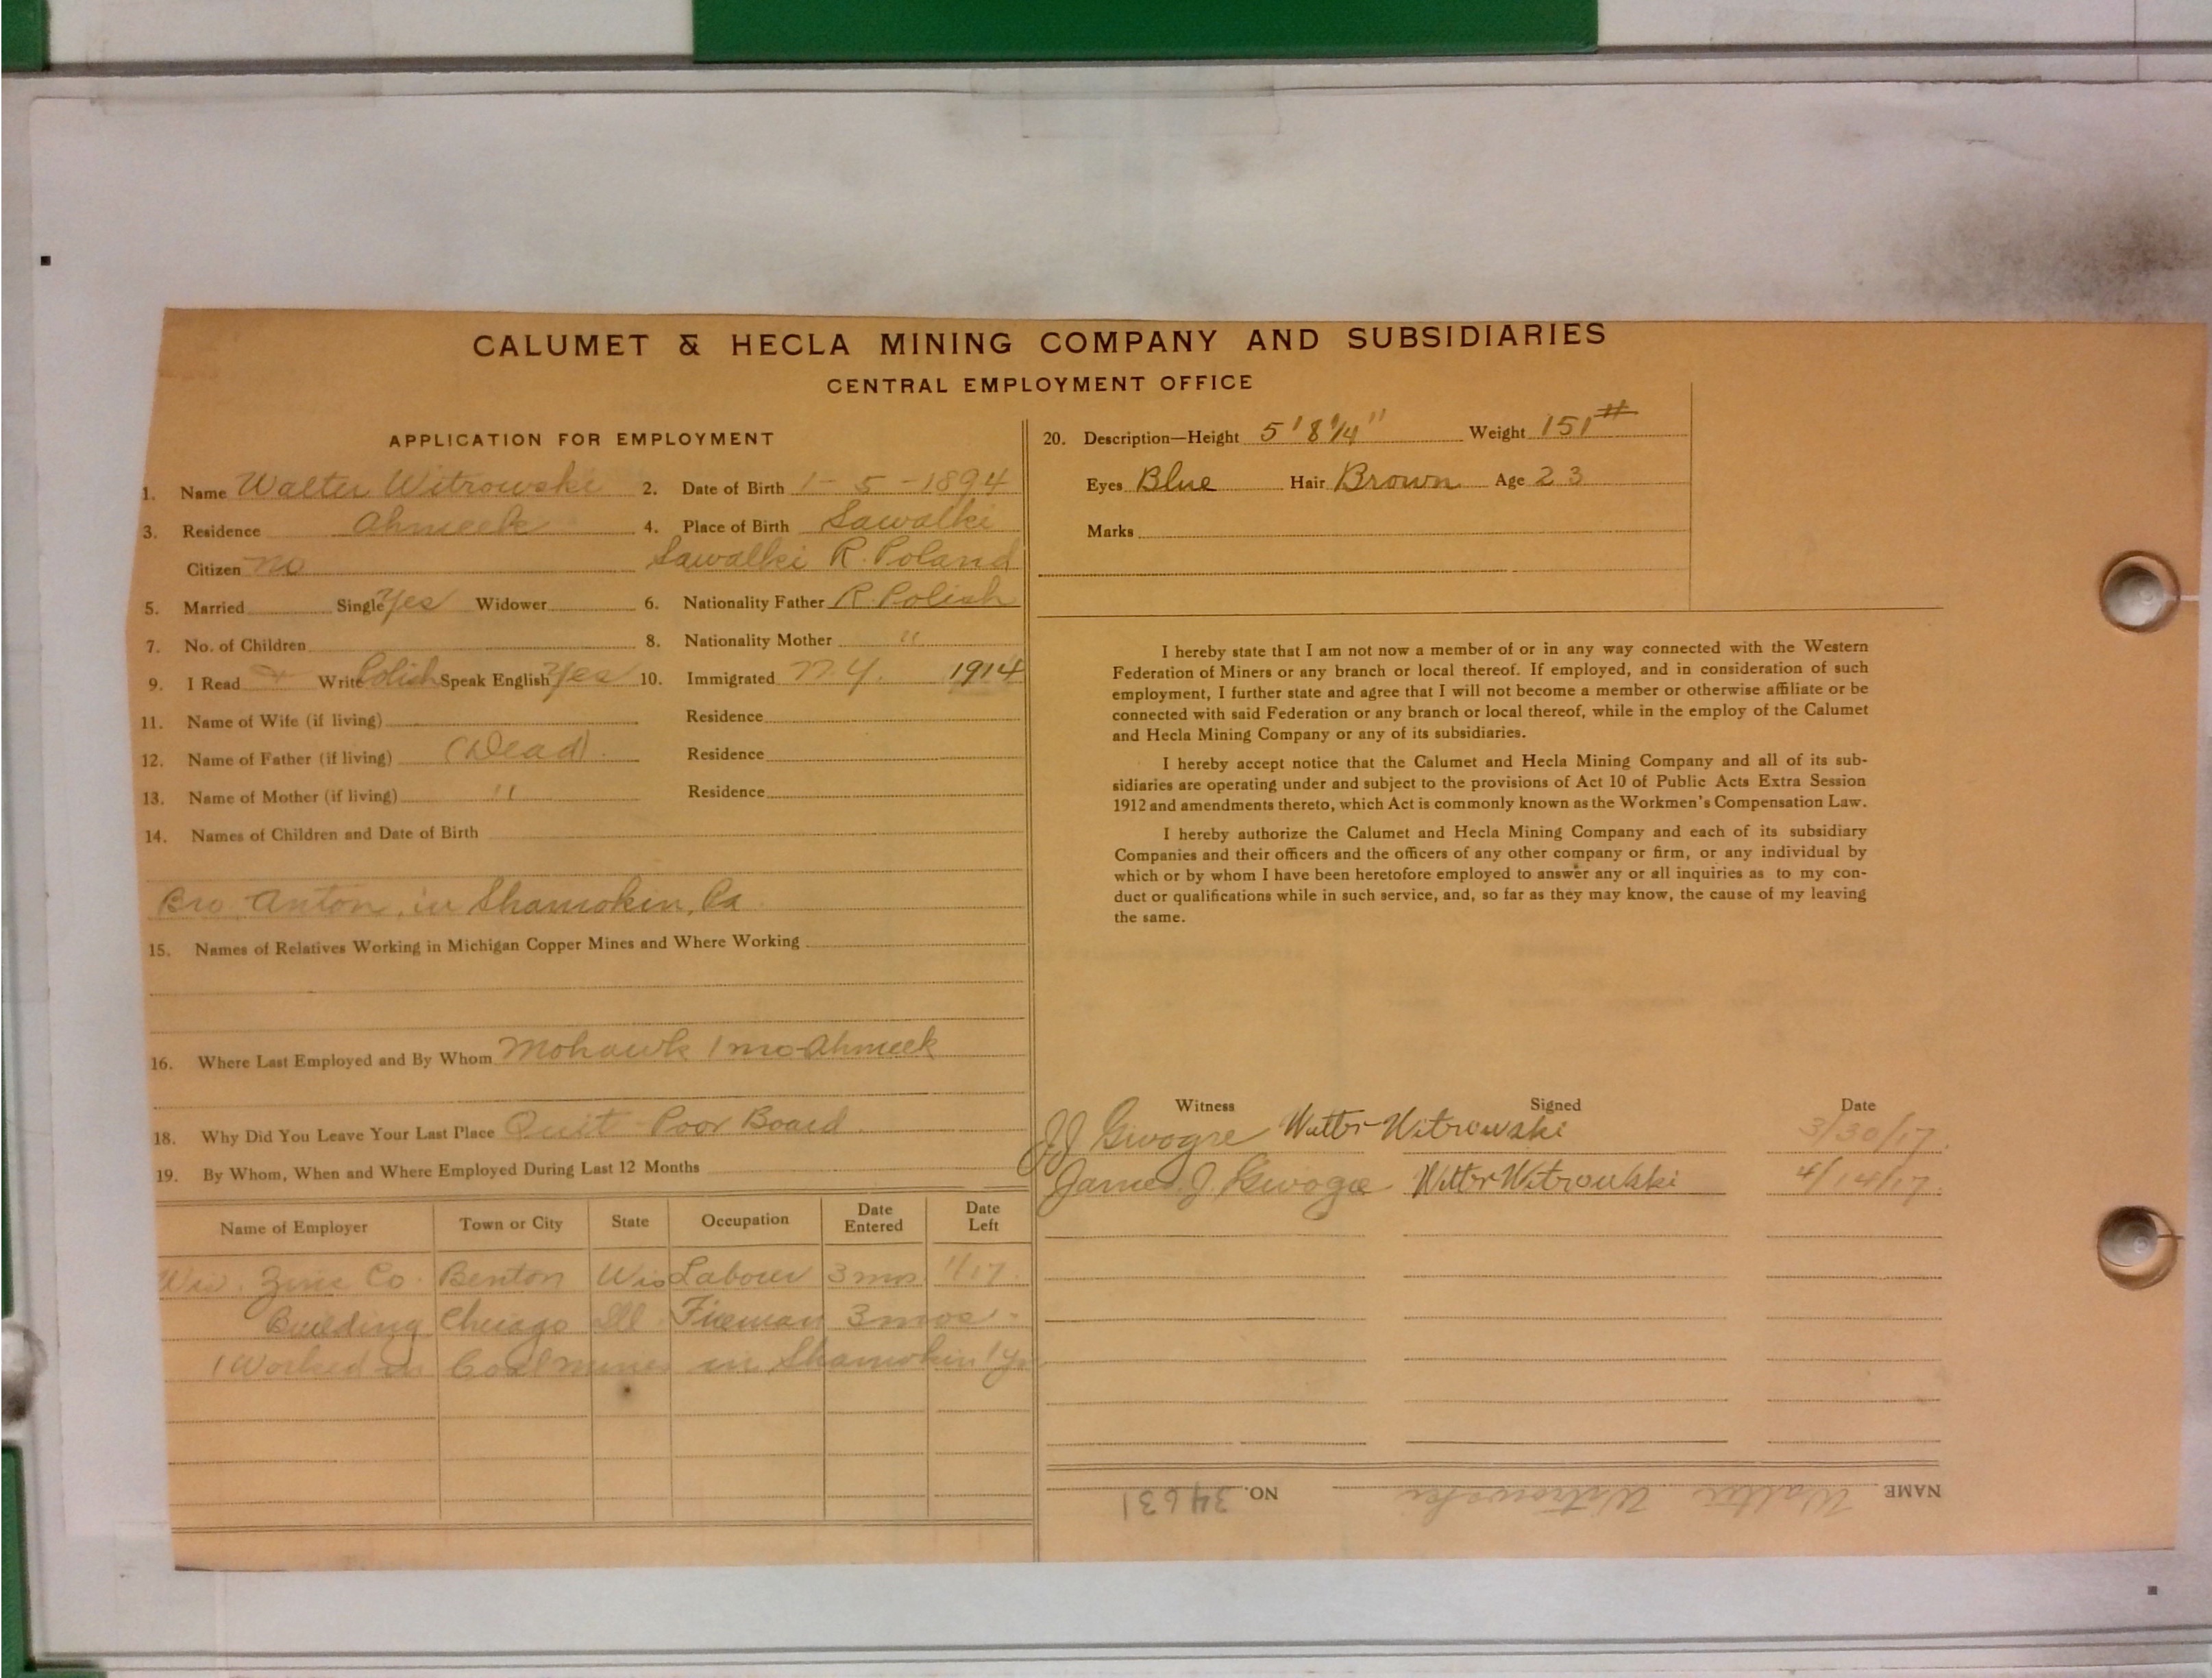 CALUMET & HECLA MINING COMPANY AND SUBSIDIARIES
CENTRAL EMPLOYMENT OFFICE
APPLICATION FOR EMPLOYMENT
1. Name Walter Witrowski 2. Date of Birth 1-5-1894
3. Residence Ahmeek 4. Place of Birth Sawalki
Citizen no Sawalki R. Poland
5. Married Single Yes Widower 6. Nationality Father R. Polish
7. No. of Children 8. Nationality Mother "
9. I Read Write Polish Speak English Yes 10. Immigrated N.Y. 1914
11. Name of Wife (if living) Residence
12. Name of Father (if living) (Dead). Residence
13. Name of Mother (if living) " Residence
14. Names of Children and Date of Birth
Bro. Anton, in Shamokin, Pa.
15. Names of Relatives Working in Michigan Copper Mines and Where Working
16. Where Last Employed and By Whom Mohawk 1 mo-Ahmeek
18. Why Did You Leave Your Last Place Quit-Poor Board
19. By Whom, When and Where Employed During Last 12 Months
Name of Employer Town or City State Occupation Date Entered Date Left
Wis. Zinc Co. Benton Wis Labour 3 mos. 1/17.
Building Chicago Ill. Fireman 3 mos.-
Worked in Coal mines in Shamokin 1 yr
20. Description—Height 5' 8 1/4" Weight 151#
Eyes Blue Hair Brown Age 23
Marks
I hereby state that I am not now a member of or in any way connected with the Western
Federation of Miners or any branch or local thereof. If employed, and in consideration of such
employment, I further state and agree that I will not become a member or otherwise affiliate or be
connected with said Federation or any branch or local thereof, while in the employ of the Calumet
and Hecla Mining Company or any of its subsidiaries.
I hereby accept notice that the Calumet and Hecla Mining Company and all of its sub-
sidiaries are operating under and subject to the provisions of Act 10 of Public Acts Extra Session
1912 and amendments thereto, which Act is commonly known as the Workmen's Compensation Law.
I hereby authorize the Calumet and Hecla Mining Company and each of its subsidiary
Companies and their officers and the officers of any other company or firm, or any individual by
which or by whom I have been heretofore employed to answer any or all inquiries as to my con-
duct or qualifications while in such service, and, so far as they may know, the cause of my leaving
the same.
Witness Signed Date
JJ Walter Witrowski 3/30/17.
James J. Walter Witrowski 4/14/17.
NAME Walter Witrowski NO. 34631